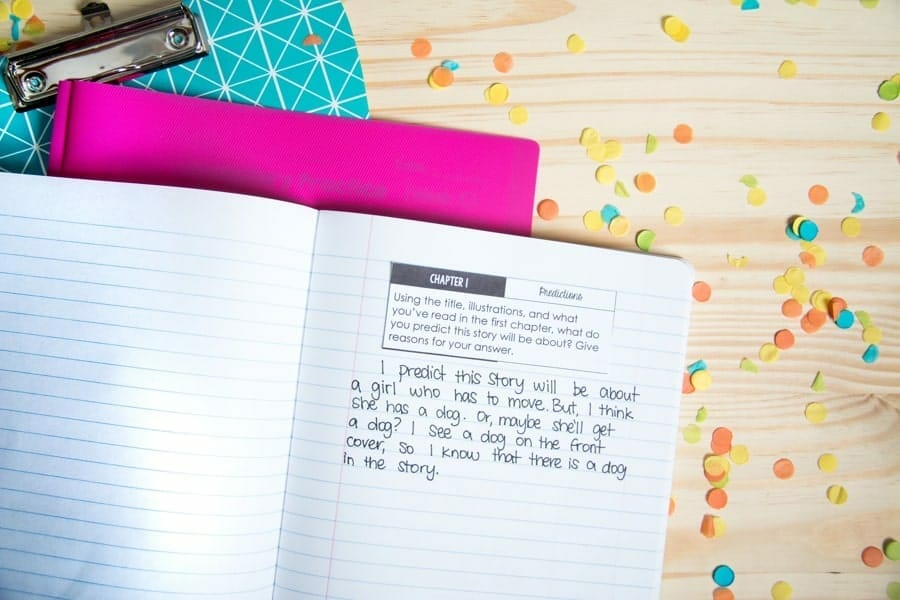 CHAPTER 1
Predictions
Using the title, illustrations, and what
you've read in the first chapter, what do
you predict this story will be about? Give
reasons for your answer.
I predict this story will be about
a girl who has to move. But, I think
she has a dog. Or, maybe she'll get
a dog? I see a dog on the front
cover, so I know that there is a dog
in the story.